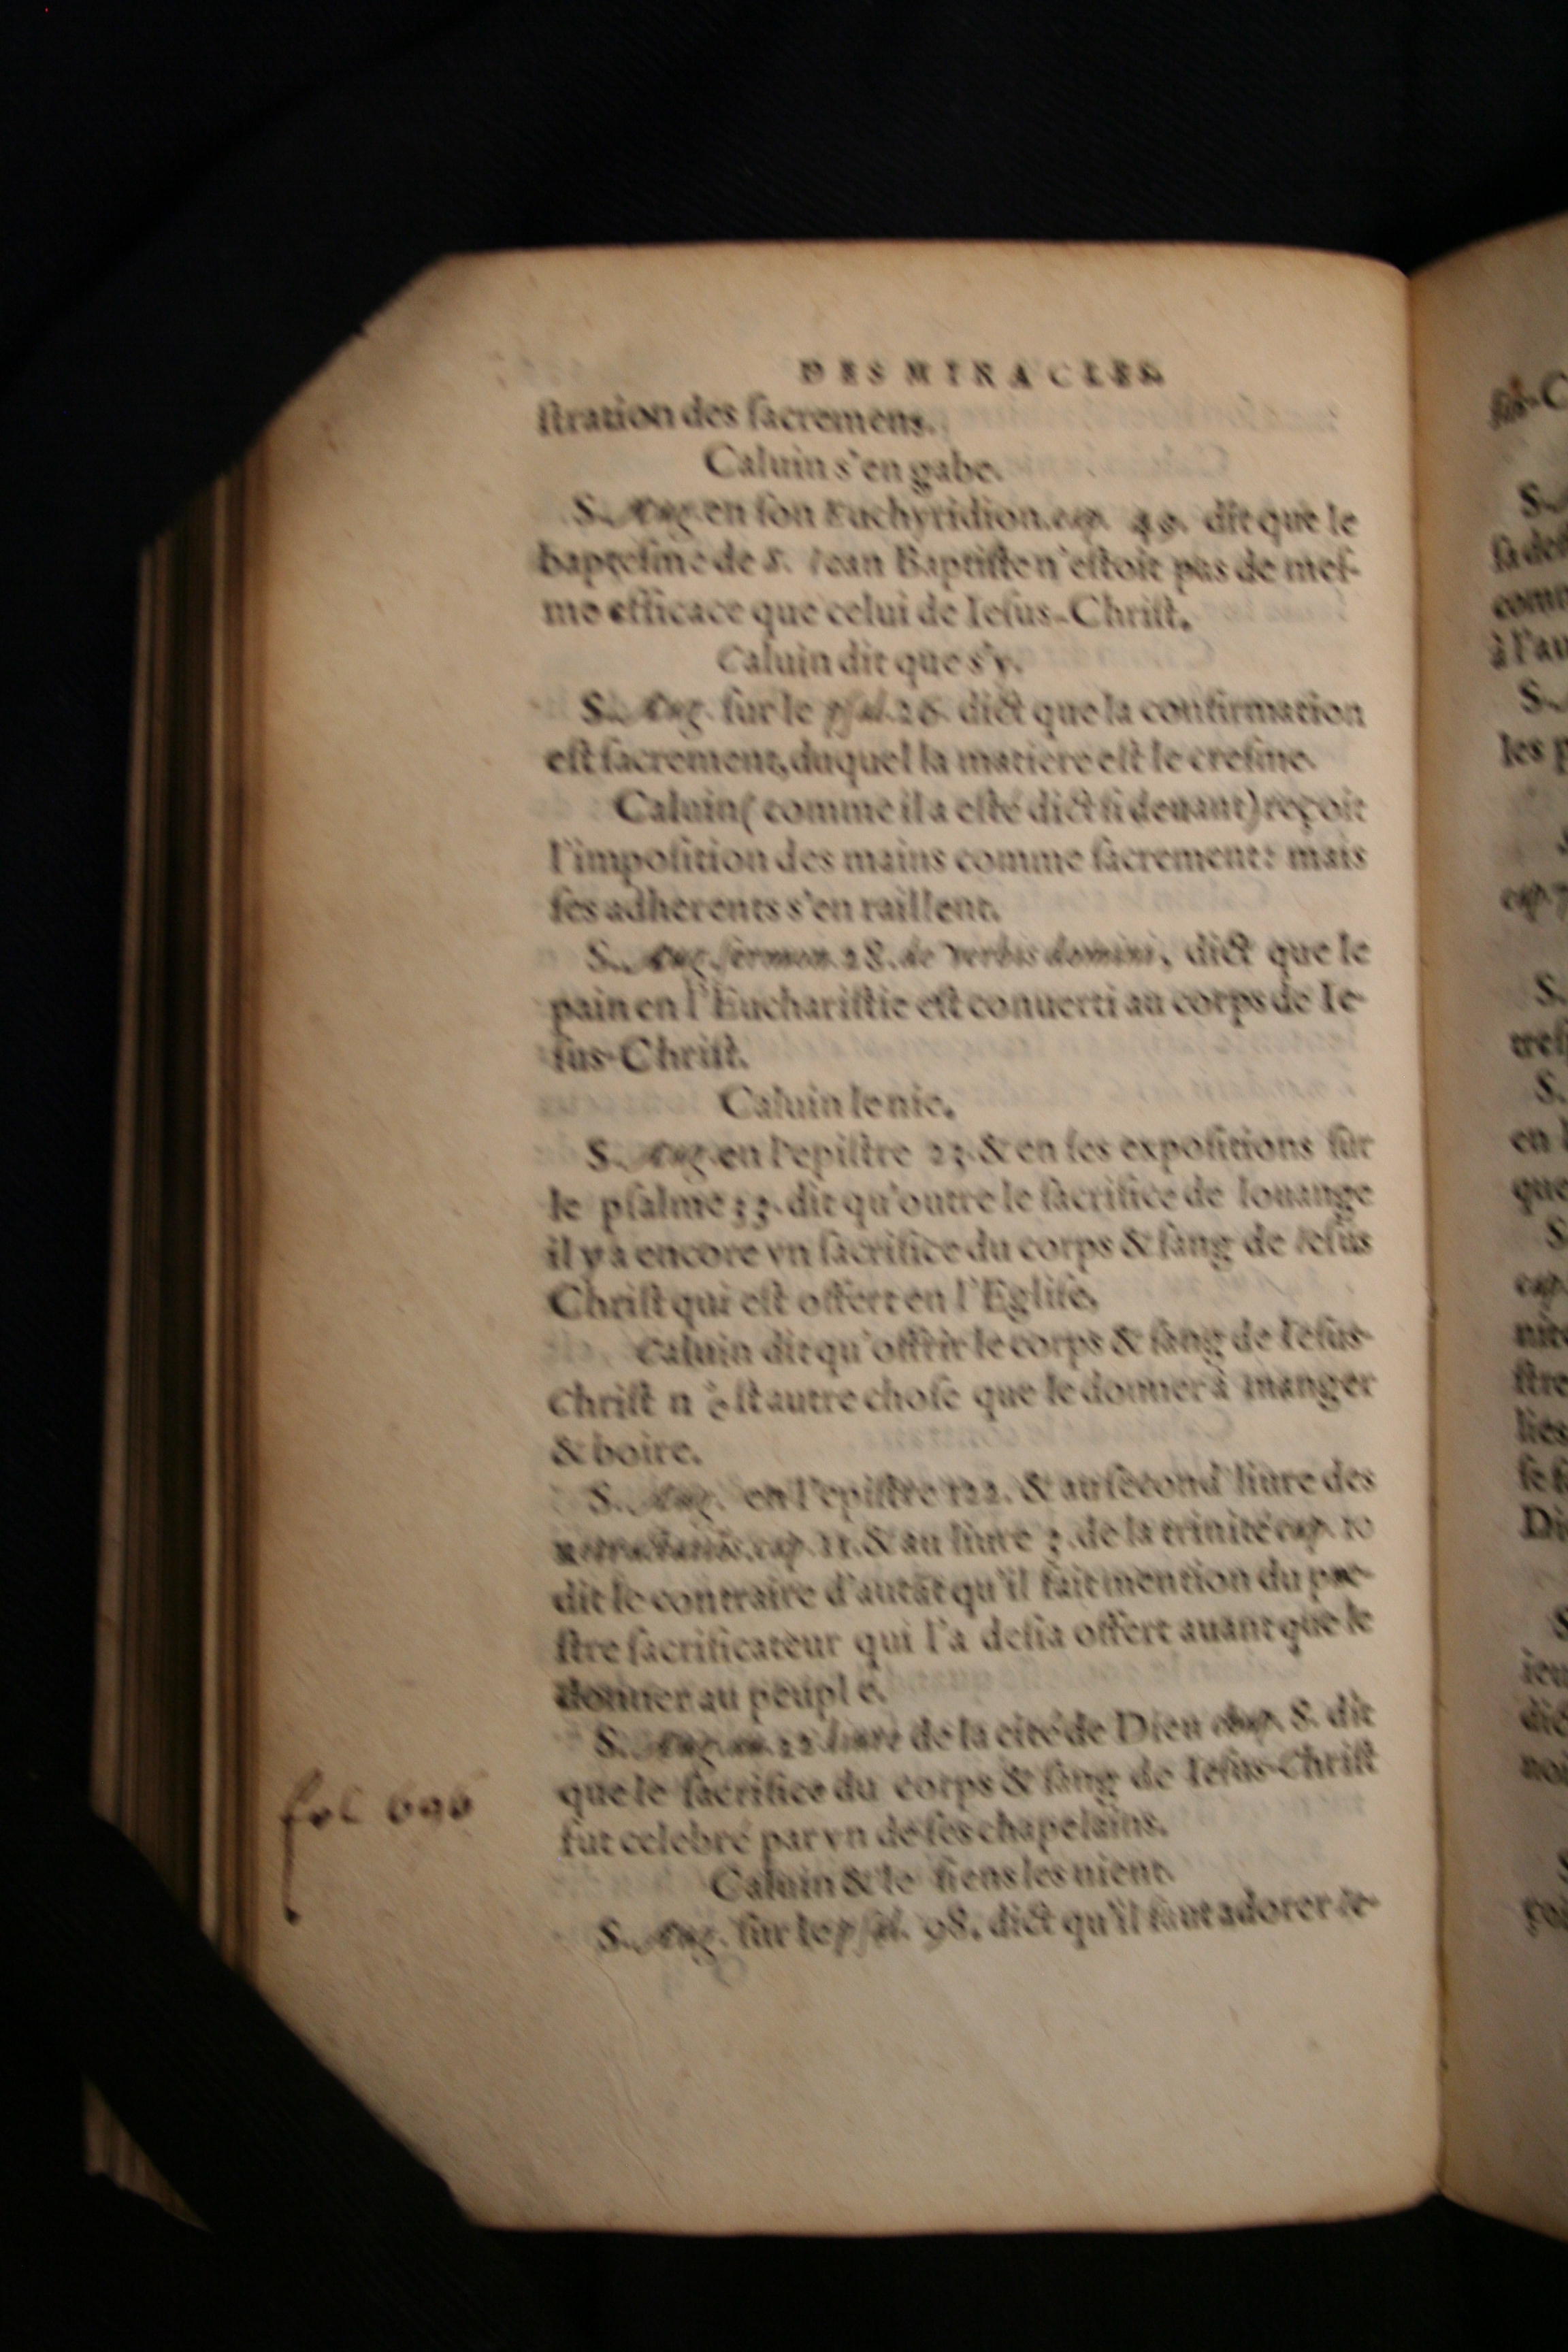 DES MIRACLES
ſtration des ſacremens.
Caluin s'en gabe.
S. Aug. en ſon Euchyridion. cap. 49. dit que le
bapteſme de S. Iean Baptiſte n'eſtoit pas de meſ-
me efficace que celui de Ieſus-Chriſt.
Caluin dit que s'y.
S. Aug. ſur le pſal. 26. dict que la confirmation
eſt ſacrement, duquel la matiere eſt le creſme.
Caluin (comme il a eſté dict ſi deuant) reçoit
l'impoſition des mains comme ſacrement: mais
ſes adherents s'en raillent.
S. Aug. ſermon. 28. de verbis domini, dict que le
pain en l'Euchariſtie eſt conuerti au corps de Ie-
ſus-Chriſt.
Caluin le nie.
S. Aug. en l'epiſtre 23. & en ſes expoſitions ſur
le pſalme 33. dit qu'outre le ſacrifice de louange
il y a encore vn ſacrifice du corps & ſang de Ieſus
Chriſt qui eſt offert en l'Egliſe.
Caluin dit qu'offrir le corps & ſang de Ieſus-
Chriſt n'eſt autre choſe que le donner à manger
& boire.
S. Aug. en l'epiſtre 122. & au ſecond liure des
cap. 11. & au liure 3. de la trinité cap. 10
dit le contraire d'autāt qu'il fait mention du pre-
ſtre ſacrificateur qui l'a deſia offert auant que le
donner au peuple.
S. Aug. au. 22 liure de la cité de Dieu chap. 8. dit
que le ſacrifice du corps & ſang de Ieſus-Chriſt
fut celebré par vn de ſes chapelains.
Caluin & le ſiens les nient.
fol 696
S. Aug. ſur le pſal. 98. dict qu'il faut adorer Ie-